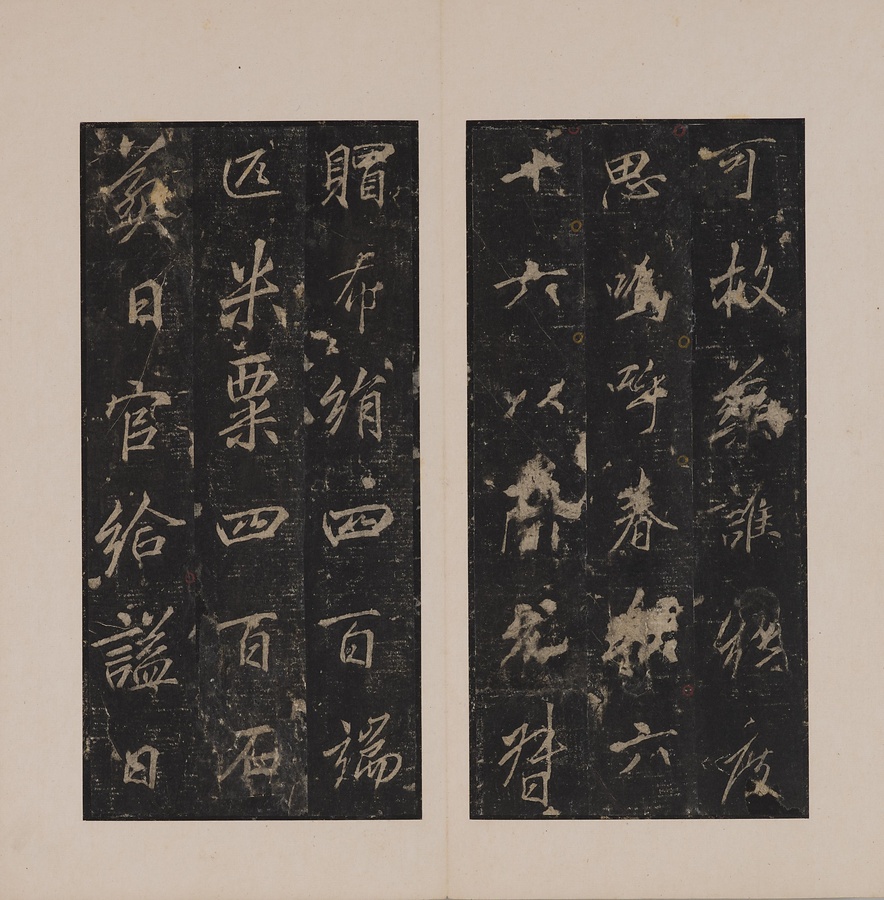 可故誰
思嗚呼春秋六
十六以
賵布絹四百端
匹米粟四百石
葬日官給謚曰